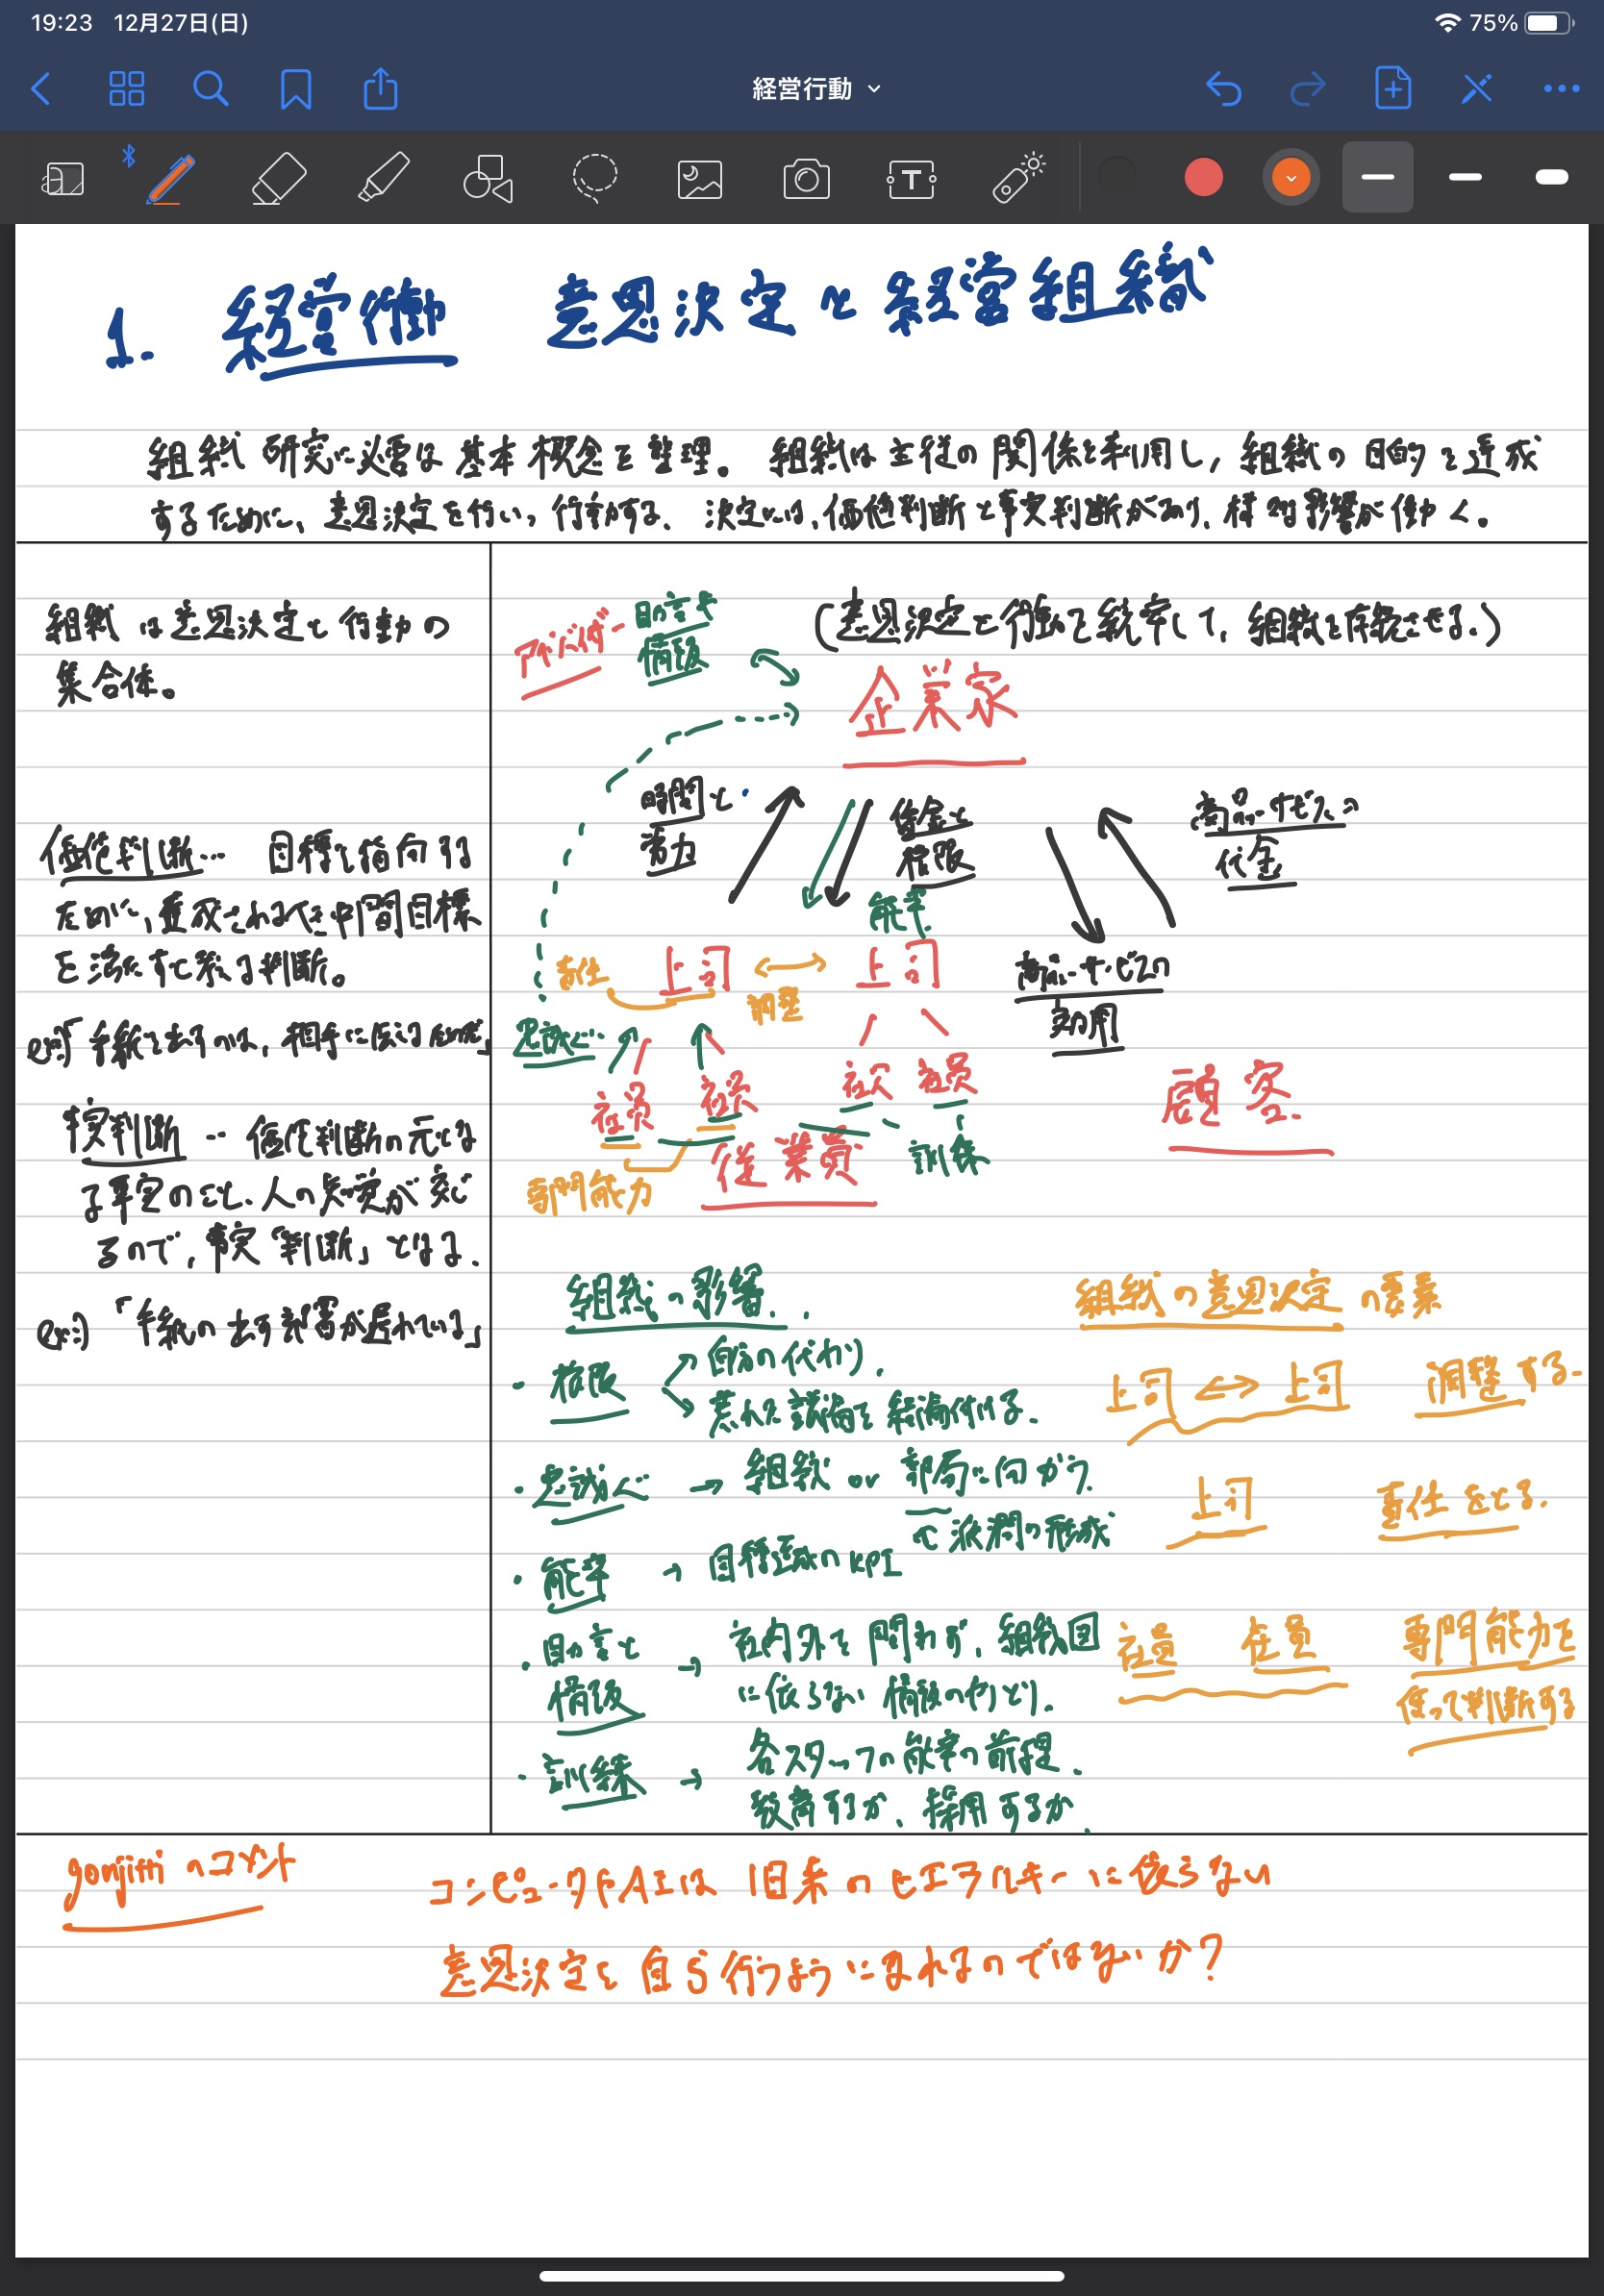 19:23 12月27日(日)
75%
経営行動
1. 経営行動 意思決定と経営組織
組織研究に必要な基本概念を整理。組織は主従の関係を利用し、組織の目的を達成
するために、意思決定を行い、行動する。決定には、価値判断と事実判断があり、様々な影響が働く。
組織は意思決定と行動の
集合体。
価値判断… 目標を指向する
ために、達成されるべき中間目標
を満たすと考える判断。
ex)「手紙を出すのは、相手に伝える
事実判断… 価値判断の元とな
る事実のこと。人の知覚が交じ
るので、事実「判断」となる。
ex)「手紙の出す部署が遅れている」
アドバイザー
助言と
情報
(意思決定と行動を統率して、組織を存続させる。)
企業家
時間と
労力
賃金と
権限
能率
商品・サービスの
代金
責任 上司 ↔ 上司
調整
商品・サービスの
効用
忠誠心
社員 社員 社員 社員
顧客
従業員
訓練
専門能力
組織の影響
・権限
自分の代わり
荒れた議論を結論付ける
・忠誠心 → 組織 or 部局に向かう
派閥の形成
・能率 → 目標達成のKPI
・助言と
情報
→ 社内外を問わず、組織図
に依らない情報のやりとり
・訓練 → 各スタッフの能率の前提
教育するか、採用するか
組織の意思決定の要素
上司 ↔ 上司 調整する
上司 責任をとる
社員 社員 専門能力を
使って判断する
gonjittiのコメント
コンピュータやAIは旧来のヒエラルキーに依らない
意思決定を自ら行うようになれるのではないか?